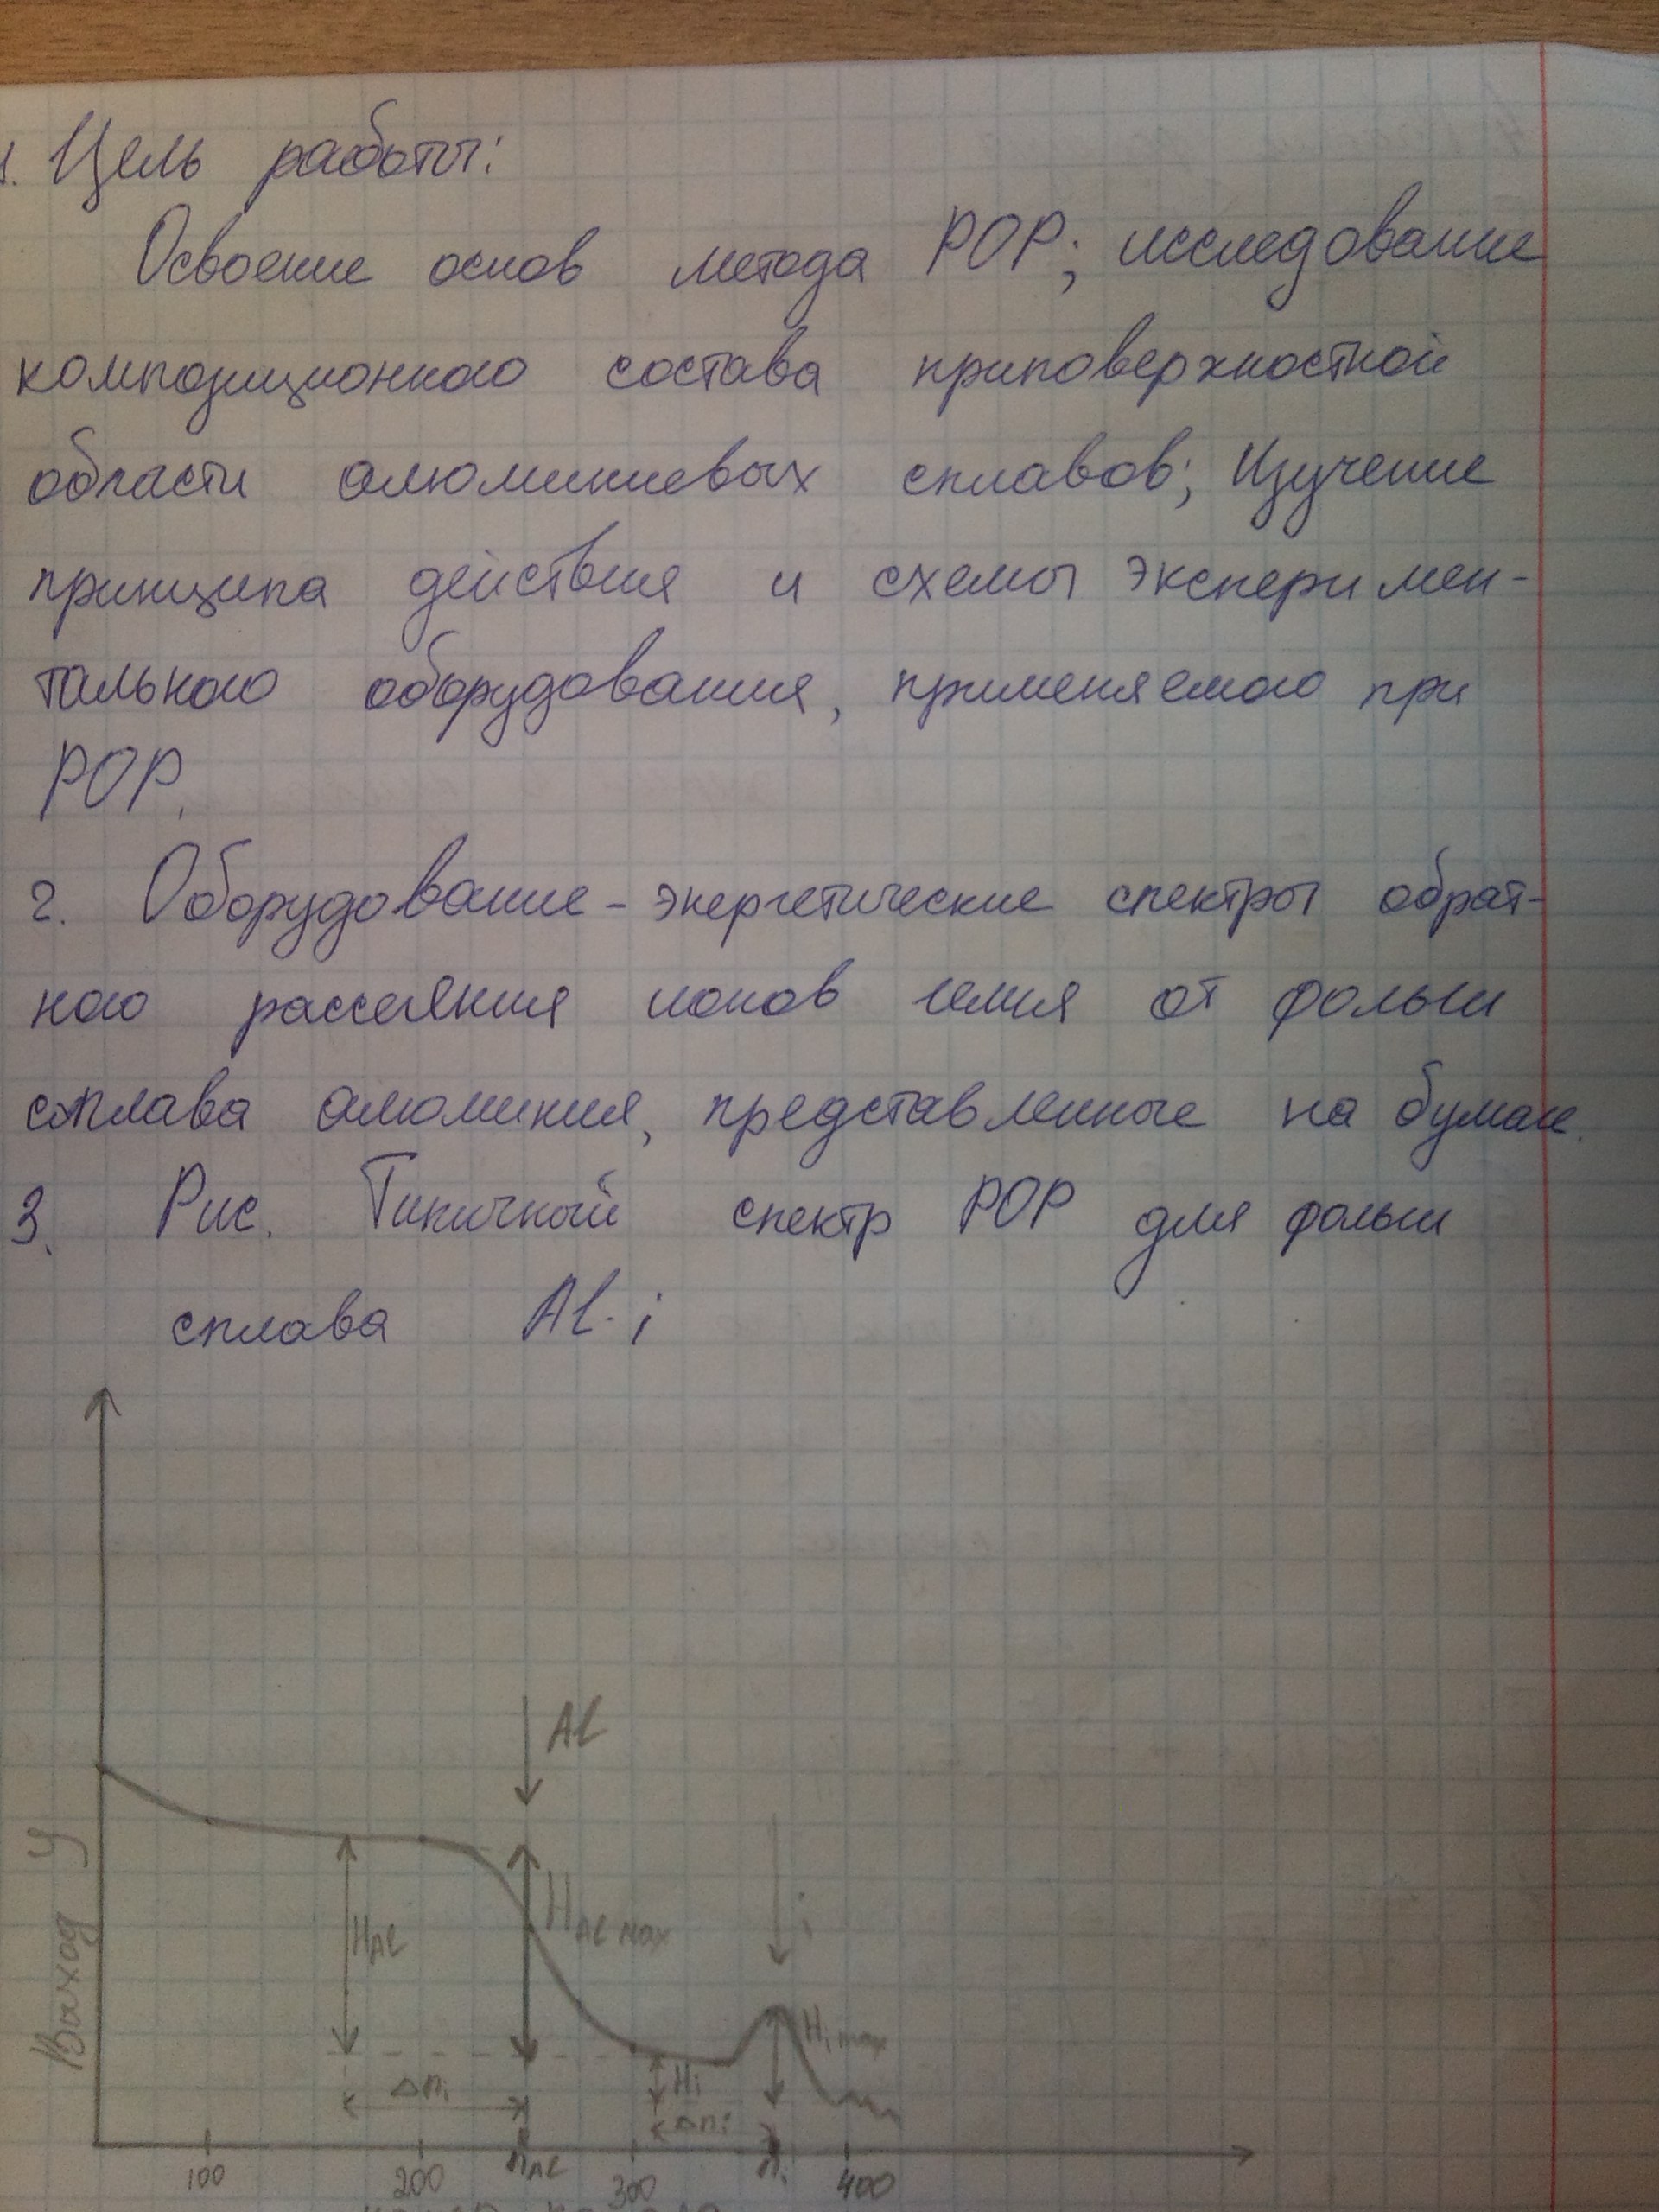 1. Цель работы:
Освоение основ метода РОР; исследование
композиционного состава приповерхностной
области алюминиевых сплавов; Изучение
принципа действия и схемы эксперимен-
тального оборудования, применяемого при
РОР.
2. Оборудование - энергетические спектры обрат-
ного рассеяния ионов гелия от фольги
сплава алюминия, представленные на бумаге.
3. Рис. Типичный спектр РОР для фольги
сплава Al-i
Al
Выход Y
i
H Al
H Al max
H i max
Δni
Hi
Δni
100 200 nAl 300 ni 400
номер канала